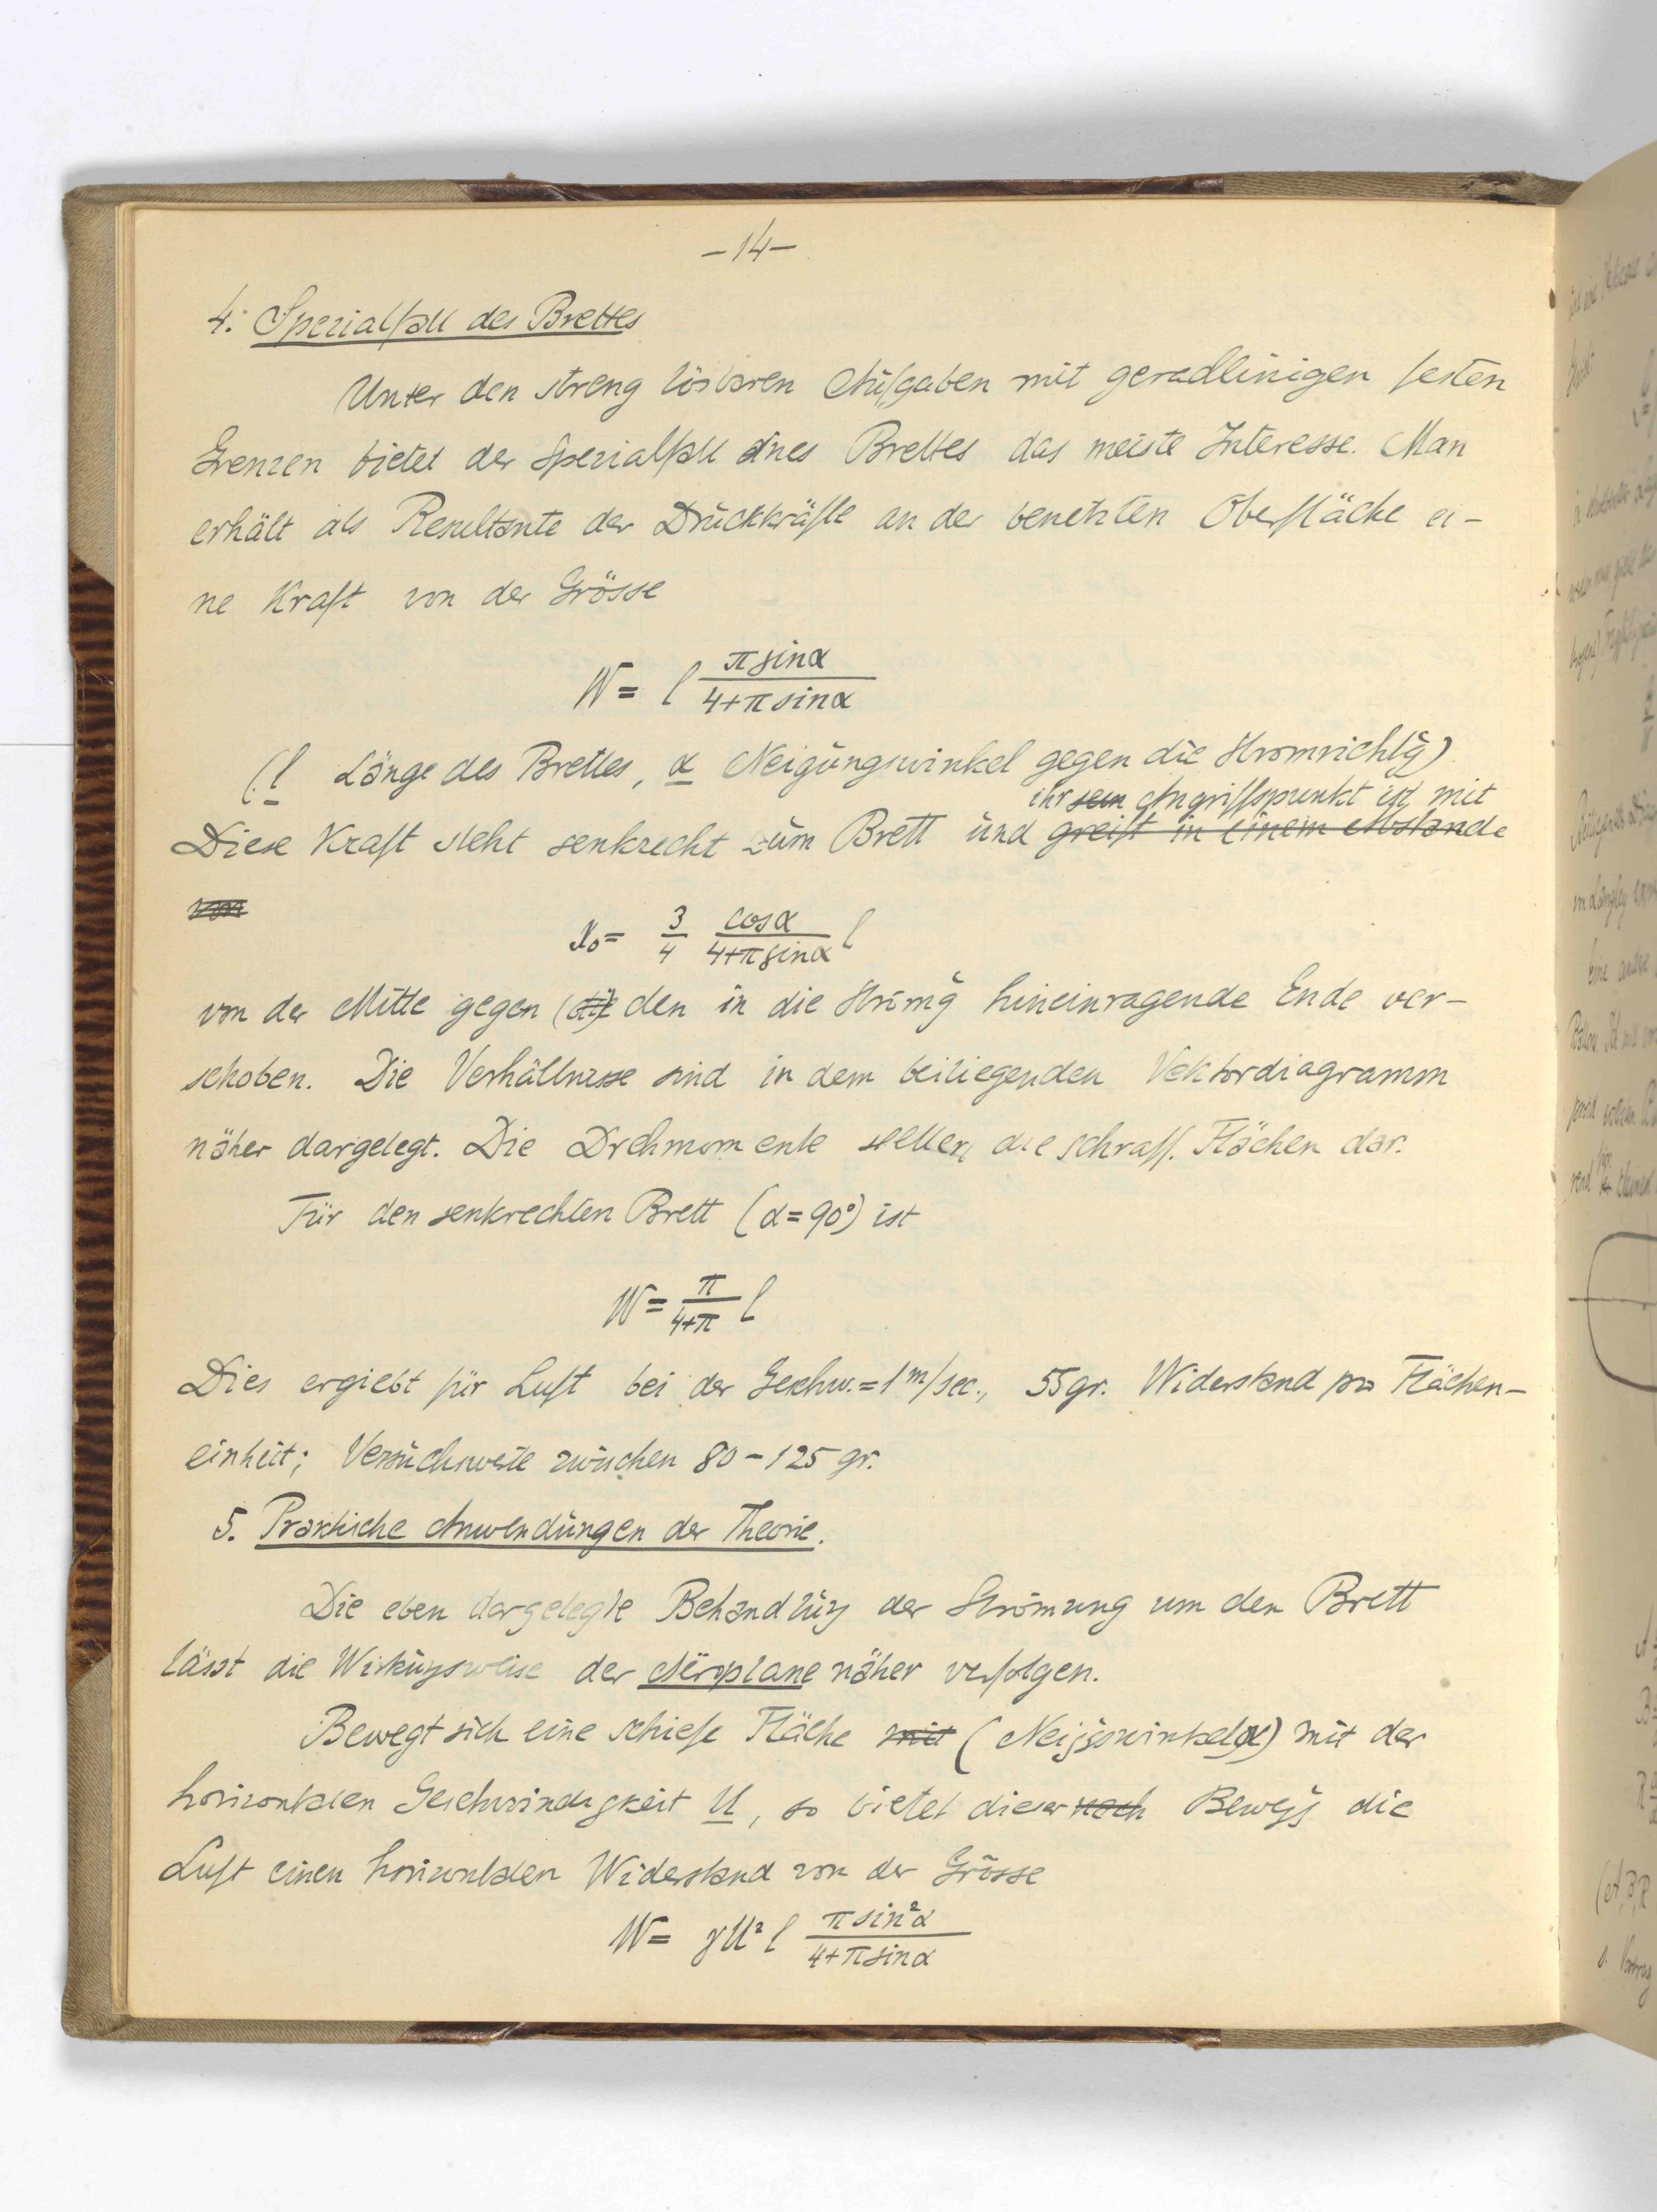 -14-
4. Spezialfall des Brettes
Unter den streng lösbaren Aufgaben mit geradlinigen festen
Grenzen bietet der Spezialfall eines Brettes das meiste Interesse. Man
erhält als Resultante der Druckkräfte an der benetzten Oberfläche ei-
ne Kraft von der Grösse
W = l π sinα / 4+π sinα
(l Länge des Brettes, α Neigungswinkel gegen die Stromrichtg)
ihr sein Angriffspunkt ist mit
Diese Kraft steht senkrecht zum Brett und greift in einem Abstande
von
x₀ = 3/4 cosα / 4+π sinα l
von der Mitte gegen (die) den in die Strömg hineinragende Ende ver-
schoben. Die Verhältnisse sind in dem beiliegenden Vektordiagramm
näher dargelegt. Die Drehmomente stellen die schraff. Flächen dar.
Für den senkrechten Brett (α=90°) ist
W = π / 4+π l
Dies ergiebt für Luft bei der Geschw.=1 m/sec., 55gr. Widerstand pro Flächen-
einheit; Versuchswerte zwischen 80-125 gr.
5. Praktische Anwendungen der Theorie.
Die eben dargelegte Behandlung der Strömung um den Brett
lässt die Wirkungsweise der Aëroplane näher verfolgen.
Bewegt sich eine schiefe Fläche mit (Neiggswinkel α) mit der
horizontalen Geschwindigkeit U, so bietet dieser nach Bewegg die
Luft einen horizontalen Widerstand von der Grösse
W = γU² l π sin²α / 4+π sinα